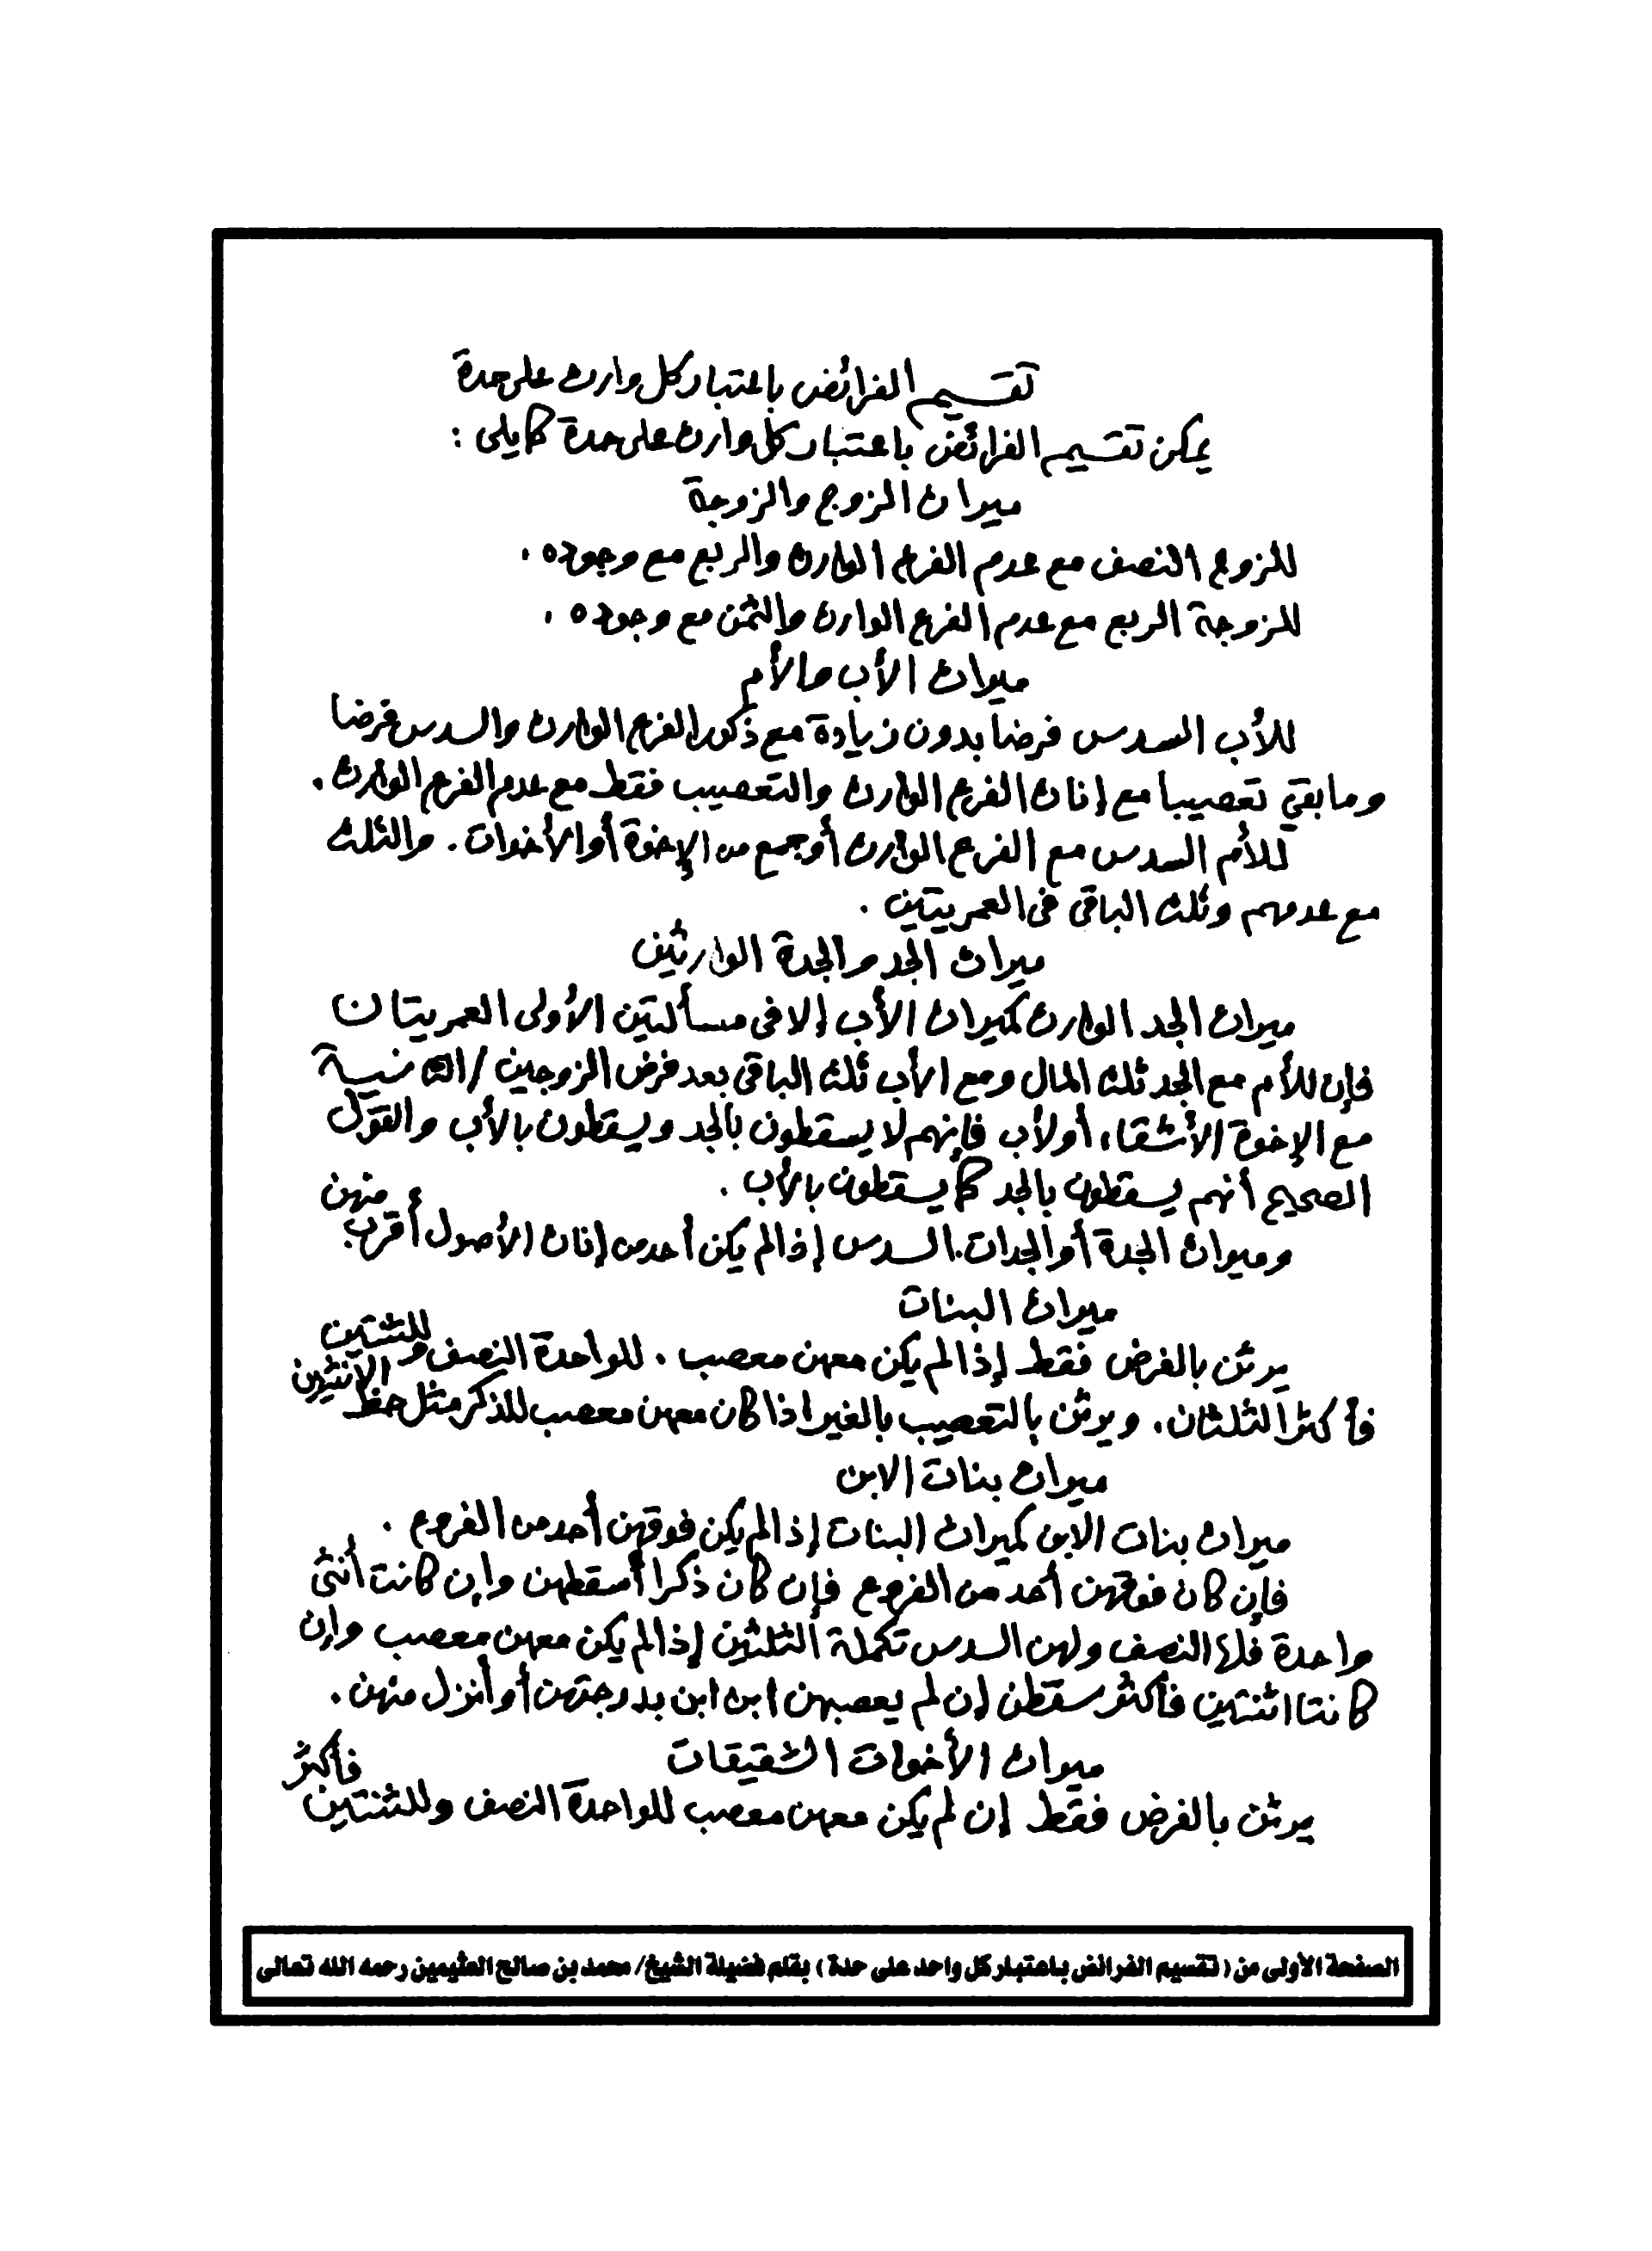 تقسيم الفرائض باعتبار كل وارث على حدة
يمكن تقسيم الفرائض باعتبار كل وارث على حدة كما يلي :
ميراث الزوج والزوجة
للزوج النصف مع عدم الفرع الوارث والربع مع وجوده .
للزوجة الربع مع عدم الفرع الوارث والثمن مع وجوده .
ميراث الأب والأم
للأب السدس فرضا بدون زيادة مع ذكور الفرع الوارث والسدس فرضا
وما بقي تعصيبا مع إناث الفرع الوارث والتعصيب فقط مع عدم الفرع الوارث .
للأم السدس مع الفرع الوارث أو جمع من الإخوة أو الأخوات . والثلث
مع عدمهم وثلث الباقي في العمريتين .
ميراث الجد والجدة الوارثين
ميراث الجد الوارث كميراث الأب إلا في مسألتين الأولى العمريتان
فإن للأم مع الجد ثلث المال ومع الأب ثلث الباقي بعد فرض الزوجين / الثانية
مع الإخوة الأشقاء أو لأب فإنهم لا يسقطون بالجد ويسقطون بالأب والقول
الصحيح أنهم يسقطون بالجد كما يسقطون بالأب .
وميراث الجدة أو الجدات السدس إذا لم يكن أحد من إناث الأصول أقرب منهن
ميراث البنات
يرثن بالفرض فقط إذا لم يكن معهن معصب . للواحدة النصف وللثنتين
فأكثر الثلثان . ويرثن بالتعصيب بالغير اذا كان معهن معصب للذكر مثل حظ الانثيين
ميراث بنات الابن
ميراث بنات الابن كميراث البنات إذا لم يكن فوقهن أحد من الفروع .
فإن كان فوقهن أحد من الفروع فإن كان ذكرا أسقطهن وإن كانت أنثى
واحدة فلها النصف ولهن السدس تكملة الثلثين إذا لم يكن معهن معصب وإن
كانتا اثنتين فأكثر سقطن إن لم يعصبهن ابن ابن بدرجتهن أو أنزل منهن .
ميراث الأخوات الشقيقات
يرثن بالفرض فقط إن لم يكن معهن معصب للواحدة النصف وللثنتين فأكثر
الصفحة الأولى من ( تقسيم الفرائض باعتبار كل واحد على حدة ) بقلم فضيلة الشيخ / محمد بن صالح العثيمين رحمه الله تعالى